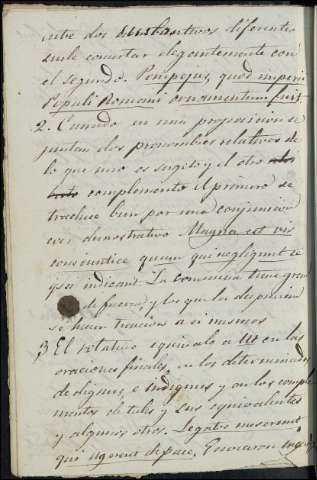 entre dos sustantivos diferentes
suele concertar elegantemente con
el segundo. Pompejus, quod imperii
Populi Romani ornamentum fuit
2. Cuando en una proposicion se
juntan dos pronombres relativos de
lo que uno es sugeto y el otro
complemento el primero se
traduce bien por una conjuncion
Magna est vis
conscientiæ quam qui negligunt se
ipsi indicant. La conciencia tiene gran
de fuerza; y los que la desprecian
se hacen traicion a si mismos
3 El relativo equivale a ut en las
oraciones finales, en los determinados
de dignus, e indignus y en los comple
mentos de talis y sus equivalentes
y algunos otros. Legatos miserunt
qui agerent de pace, Enviaron